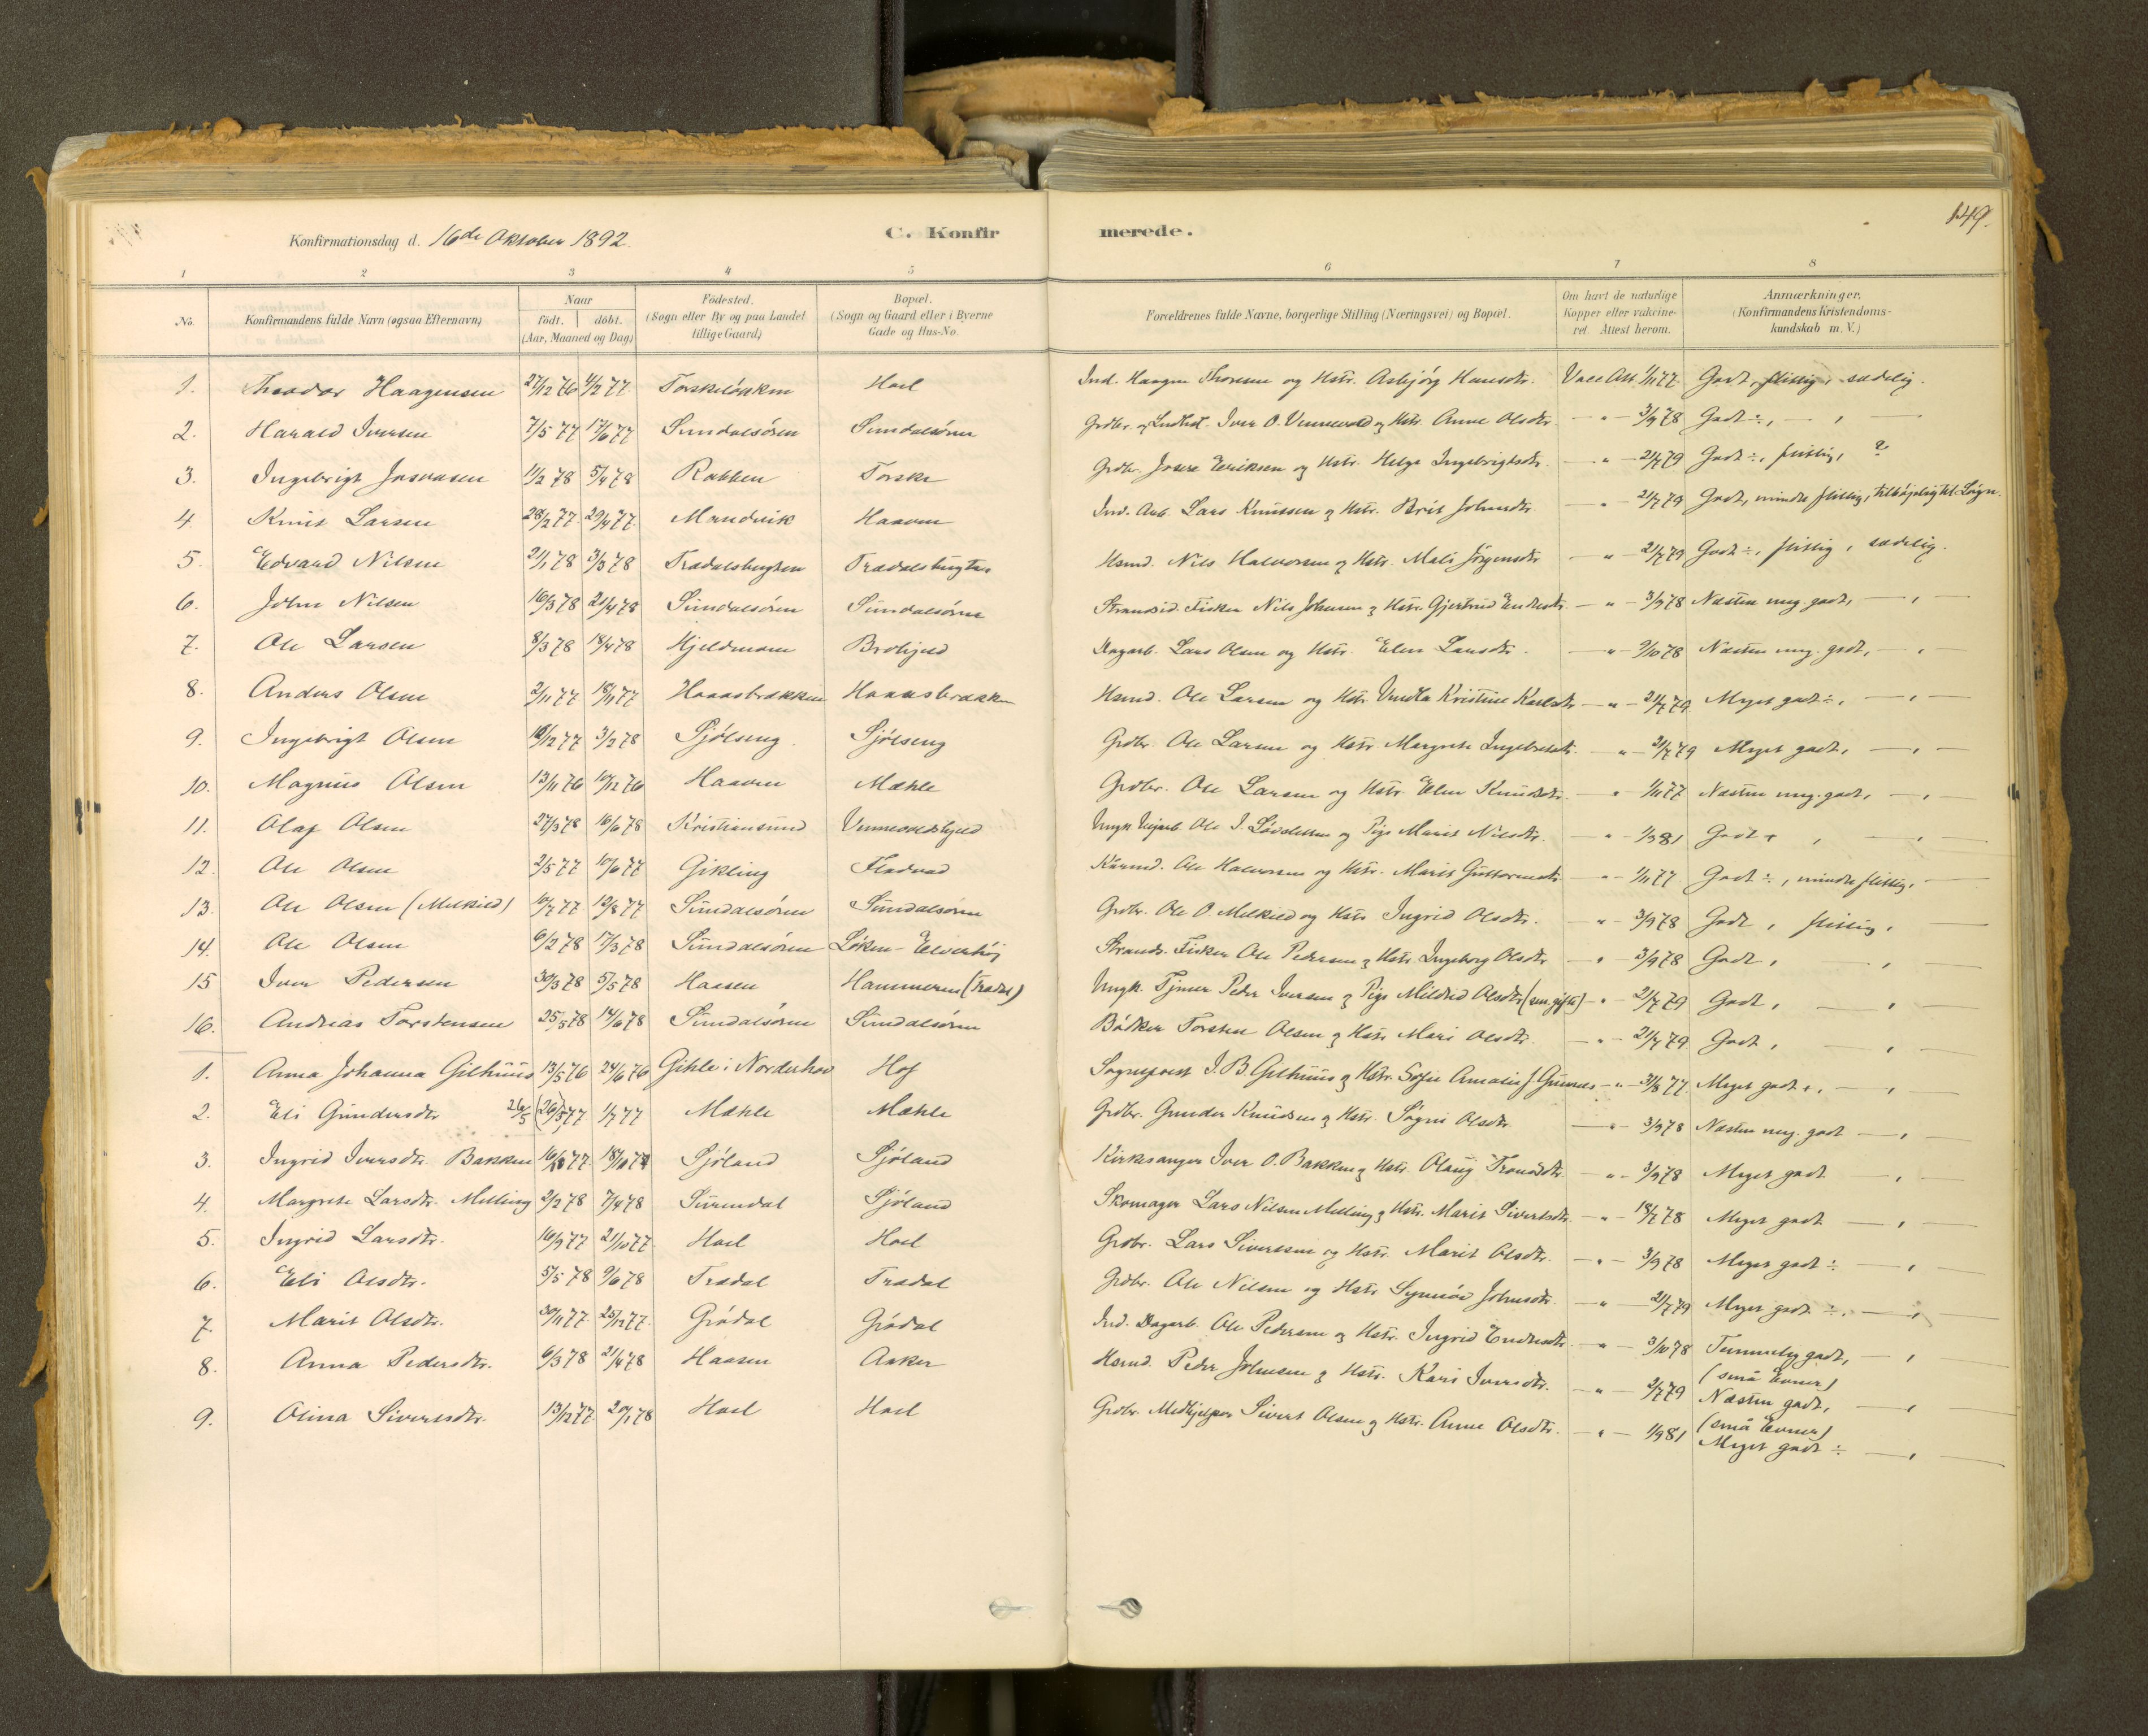 149.
Konfirmationsdag d. 16de Oktober 1892. C. Konfirmerede.
1 2 3 4 5 6 7 8
No. Konfirmandens fulde Navn (ogsaa Efternavn) Naar födt. döbt. (Aar, Maaned og Dag) Födested. (Sogn eller By og paa Landet tillige Gaard) Bopæl. (Sogn og Gaard eller i Byerne Gade og Hus-No. Forældrenes fulde Navne, borgerlige Stilling (Næringsvei) og Bopæl. Om havt de naturlige Kopper eller vakcineret. Attest herom. Anmærkninger. (Konfirmandens Kristendomskundskab m. V.)
1. Theodor Haagensen 27/12 76 4/2 77 Torskeløkken Hoel Ind. Haagen Thoresen og Hstr. Asbjørg Hansdtr. Vacc Att 1/11 77 Godt, flittig, sædelig.
2. Harald Iversen 7/5 77 17/6 77 Sundalsören Sundalsören Grdbr. og Iver O. Vennevold og Hstr. Anne Olsdtr. — " — 3/9 78 Godt ÷, — , —
3. Ingebrigt 11/2 78 5/4 78 Rabben Torske Grdbr. Eriksen og Hstr. Helga Ingebrigtsdtr. — " — 21/7 79 Godt ÷, flittig, ?
4. Knut Larsen 28/2 77 29/4 77 Mandvik Haaven Ind. Arb. Lars Knutsen og Hstr. Brit Johnsdtr. — " — 21/7 79 Godt, mindre flittig, tilbøjelig til Løgn.
5. Edvard Nilsen 21/1 78 3/3 78 Trædalsbugten Trædalsbugten Hsmd. Nils Halvorsen og Hstr. Mali Jörgensdtr. — " — 21/7 79 Godt ÷, flittig, sædelig.
6. John Nilsen 16/3 78 21/4 78 Sundalsören Sundalsören Strandsid. Fisker Nils Johnsen og Hstr. Gjertrud Endresdtr. — " — 3/9 78 Næsten meg. godt, — , —
7. Ole Larsen 8/3 78 18/4 78 Hjeldmoen Dagarb. Lars Olsen og Hstr. Elen Larsdtr. — " — 9/10 78 Næsten meg. godt, — , —
8. Anders Olsen 2/11 77 18/11 77 Haaasbrækken Haaasbrækken Hsmd. Ole Larsen og Hstr. Kristine Karlsdtr. — " — 21/7 79 Meget godt ÷, — , —
9. Ingebrigt Olsen 18/12 77 3/2 78 Sjölseng Sjölseng Grdbr. Ole Larsen og Hstr. Margrete — " — 21/7 79 Meget godt, — , —
10. Magnus Olsen 13/11 76 10/12 76 Haaven Mæhle Grdbr. Ole Larsen og Hstr. Elen Knudsdtr. — " 1/11 77 Næsten meg. godt, — , —
11. Olaf Olsen 27/3 78 16/6 78 Kristiansund Vennevoldshjeld Ungk. Ole I. og Pige Marit Nilsdtr. — " 1/9 81 Godt + , — , —
12. Ole Olsen 2/5 77 10/6 77 Gikling Fladvad Ole Halvorsen og Hstr. Marit Guttormsdtr. — " — 1/11 77 Godt ÷, mindre flittig, —
13. Ole Olsen (Melkild) 16/7 77 12/8 77 Sundalsören Sundalsören Grdbr. Ole O. Melkild og Hstr. Ingrid Olsdtr. " — 3/9 78 Godt, flittig, —
14. Ole Olsen 6/2 78 17/3 78 Sundalsören Løken - Elverhöj Strands. Fisker Ole Pedersen og Hstr. Ingeborg Olsdtr. — " — 3/9 78 Godt, — , —
15 Iver Pedersen 30/3 78 5/5 78 Haasen Hammeren (Trædal) Ungk. Tjener Peder Iversen og Pige Mildrid Olsdtr. (sen. gifte) — " — 21/7 79 Godt, — , —
16. Andreas Torstensen 25/5 78 14/6 78 Sundalsören Sundalsören Bödker Torsten Olsen og Hstr. Mari Olsdtr. — " — 21/7 79 Godt, — , —
1. Anna Johanna Gilhuus 13/5 76 24/6 76 Gihle i Norderhov Hof Sognepræst J. B. Gilhuus og Hstr. Sofie Amalie J. — " — 31/8 77. Meget godt +, — ,
2. Eli Gundersdtr. 26/5 (26/5) 77 1/7 77 Mæhle Mæhle Grdbr. Gunder Knudsen og Hstr. Sögni Olsdtr. — " — 3/9 78 Næsten meg. godt — , —
3. Ingrid Iversdtr. Bakken 16/8 77 18/10 77 Sjöland Sjöland Kirkesanger Iver O. Bakken og Hstr. Olaug Trondsdtr. " — 3/9 78 Meget godt — , —
4. Margrete Larsdtr. Melling 2/2 78 7/4 78 Surendal Sjöland Skomager Lars Nilsen Melling og Hstr. Marit Sivertsdtr. — " — 18/7 78 Meget godt — , —
5. Ingrid Larsdtr. 16/9 77 21/10 77 Hoel Hoel Grdbr. Lars Sivertsen og Hstr. Marit Olsdtr. — " — 3/9 78 Meget godt ÷ — , —
6. Eli Olsdtr. 5/5 78 9/6 78 Trædal Trædal Grdbr. Ole Nilsen og Hstr. Synnöv Johnsdtr. — " — 21/7 79 Meget godt ÷, — , —
7. Marit Olsdtr. 30/11 77 25/12 77 Grödal Grödal Ind. Dagarb. Ole Pedersen og Hstr. Ingrid Endresdtr. — " — 3/10 78 Temmelig godt, — ,
(små Evner)
8. Anna Pedersdtr. 6/3 78 21/4 78 Haasen Anker Hsmd. Peder Johnsen og Hstr. Kari Iversdtr. — " — 2/7 79 Næsten godt, — , —
(små Evner)
9. Olina Sivertsdtr. 13/12 77 20/1 78 Hoel Hoel Grdbr. Medhjelper Sivert Olsen og Hstr. Anne Olsdtr. — " — 1/9 81 Meget godt ÷ — , —